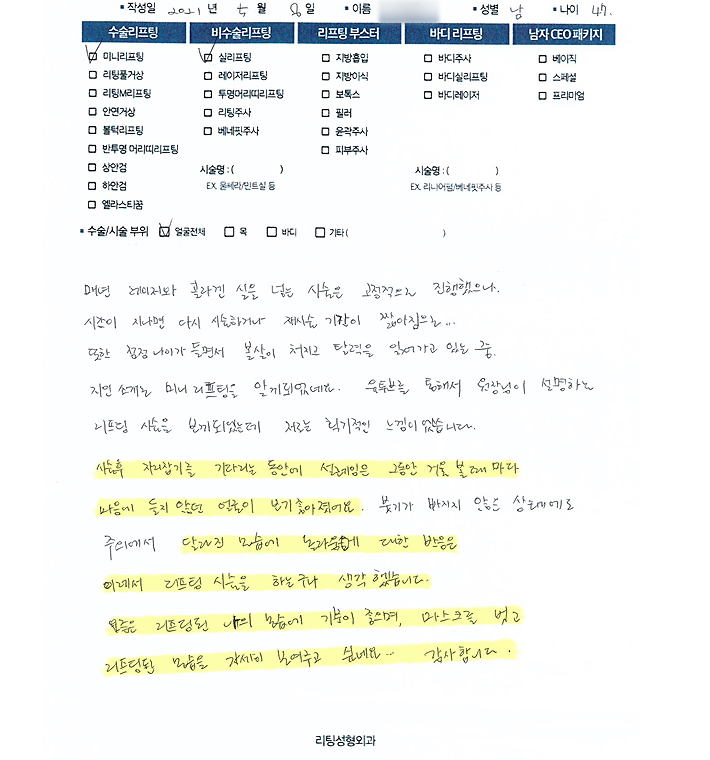 ▪ 작성일 2021 년 5 월 8 일 ▪ 이름 ▪ 성별 남 ▪ 나이 47.
수술리프팅 비수술리프팅 리프팅 부스터 바디 리프팅 남자 CEO 패키지
☑ 미니리프팅 ☑ 실리프팅 □ 지방흡입 □ 바디주사 □ 베이직
□ 리팅풀거상 □ 레이저리프팅 □ 지방이식 □ 바디실리프팅 □ 스페셜
□ 리팅M리프팅 □ 투명머리띠리프팅 □ 보톡스 □ 바디레이저 □ 프리미엄
□ 안면거상 □ 리팅주사 □ 필러
□ 볼턱리프팅 □ 베네핏주사 □ 윤곽주사
□ 반투명 머리띠리프팅 □ 피부주사
□ 상안검 시술명 : ( ) 시술명 : ( )
□ 하안검 EX. 울쎄라/민트실 등 EX. 리니어펌/베네핏주사 등
□ 엘라스티꿈
▪ 수술/시술 부위 ☑ 얼굴전체 □ 목 □ 바디 □ 기타 ( )
매년 레이저와 콜라겐 실을 넣는 시술은 고정적으로 진행했으나.
시간이 지나면 다시 시술하거나 재시술 기간이 짧아짐으로...
또한 점점 나이가 들면서 볼살이 처지고 탄력을 잃어가고 있는 중.
지인 소개로 미니 리프팅을 알게되었네요. 유튜브를 통해서 원장님이 설명하는
리프팅 시술을 보게되었는데 저로는 획기적인 느낌이었습니다.
시술후 자리잡기를 기다리는 동안에 설레임은 그동안 거울 볼때 마다
마음에 들지 않던 얼굴이 보기좋아졌어요. 붓기가 빠지지 않은 상태에도
주위에서 달라진 모습에 놀라움에 대한 반응은
이래서 리프팅 시술을 하는구나 생각했습니다.
요즘은 리프팅된 나의 모습에 기분이 좋으며, 마스크를 벗고
리프팅된 모습을 자세히 보여주고 싶네요... 감사합니다.
리팅성형외과